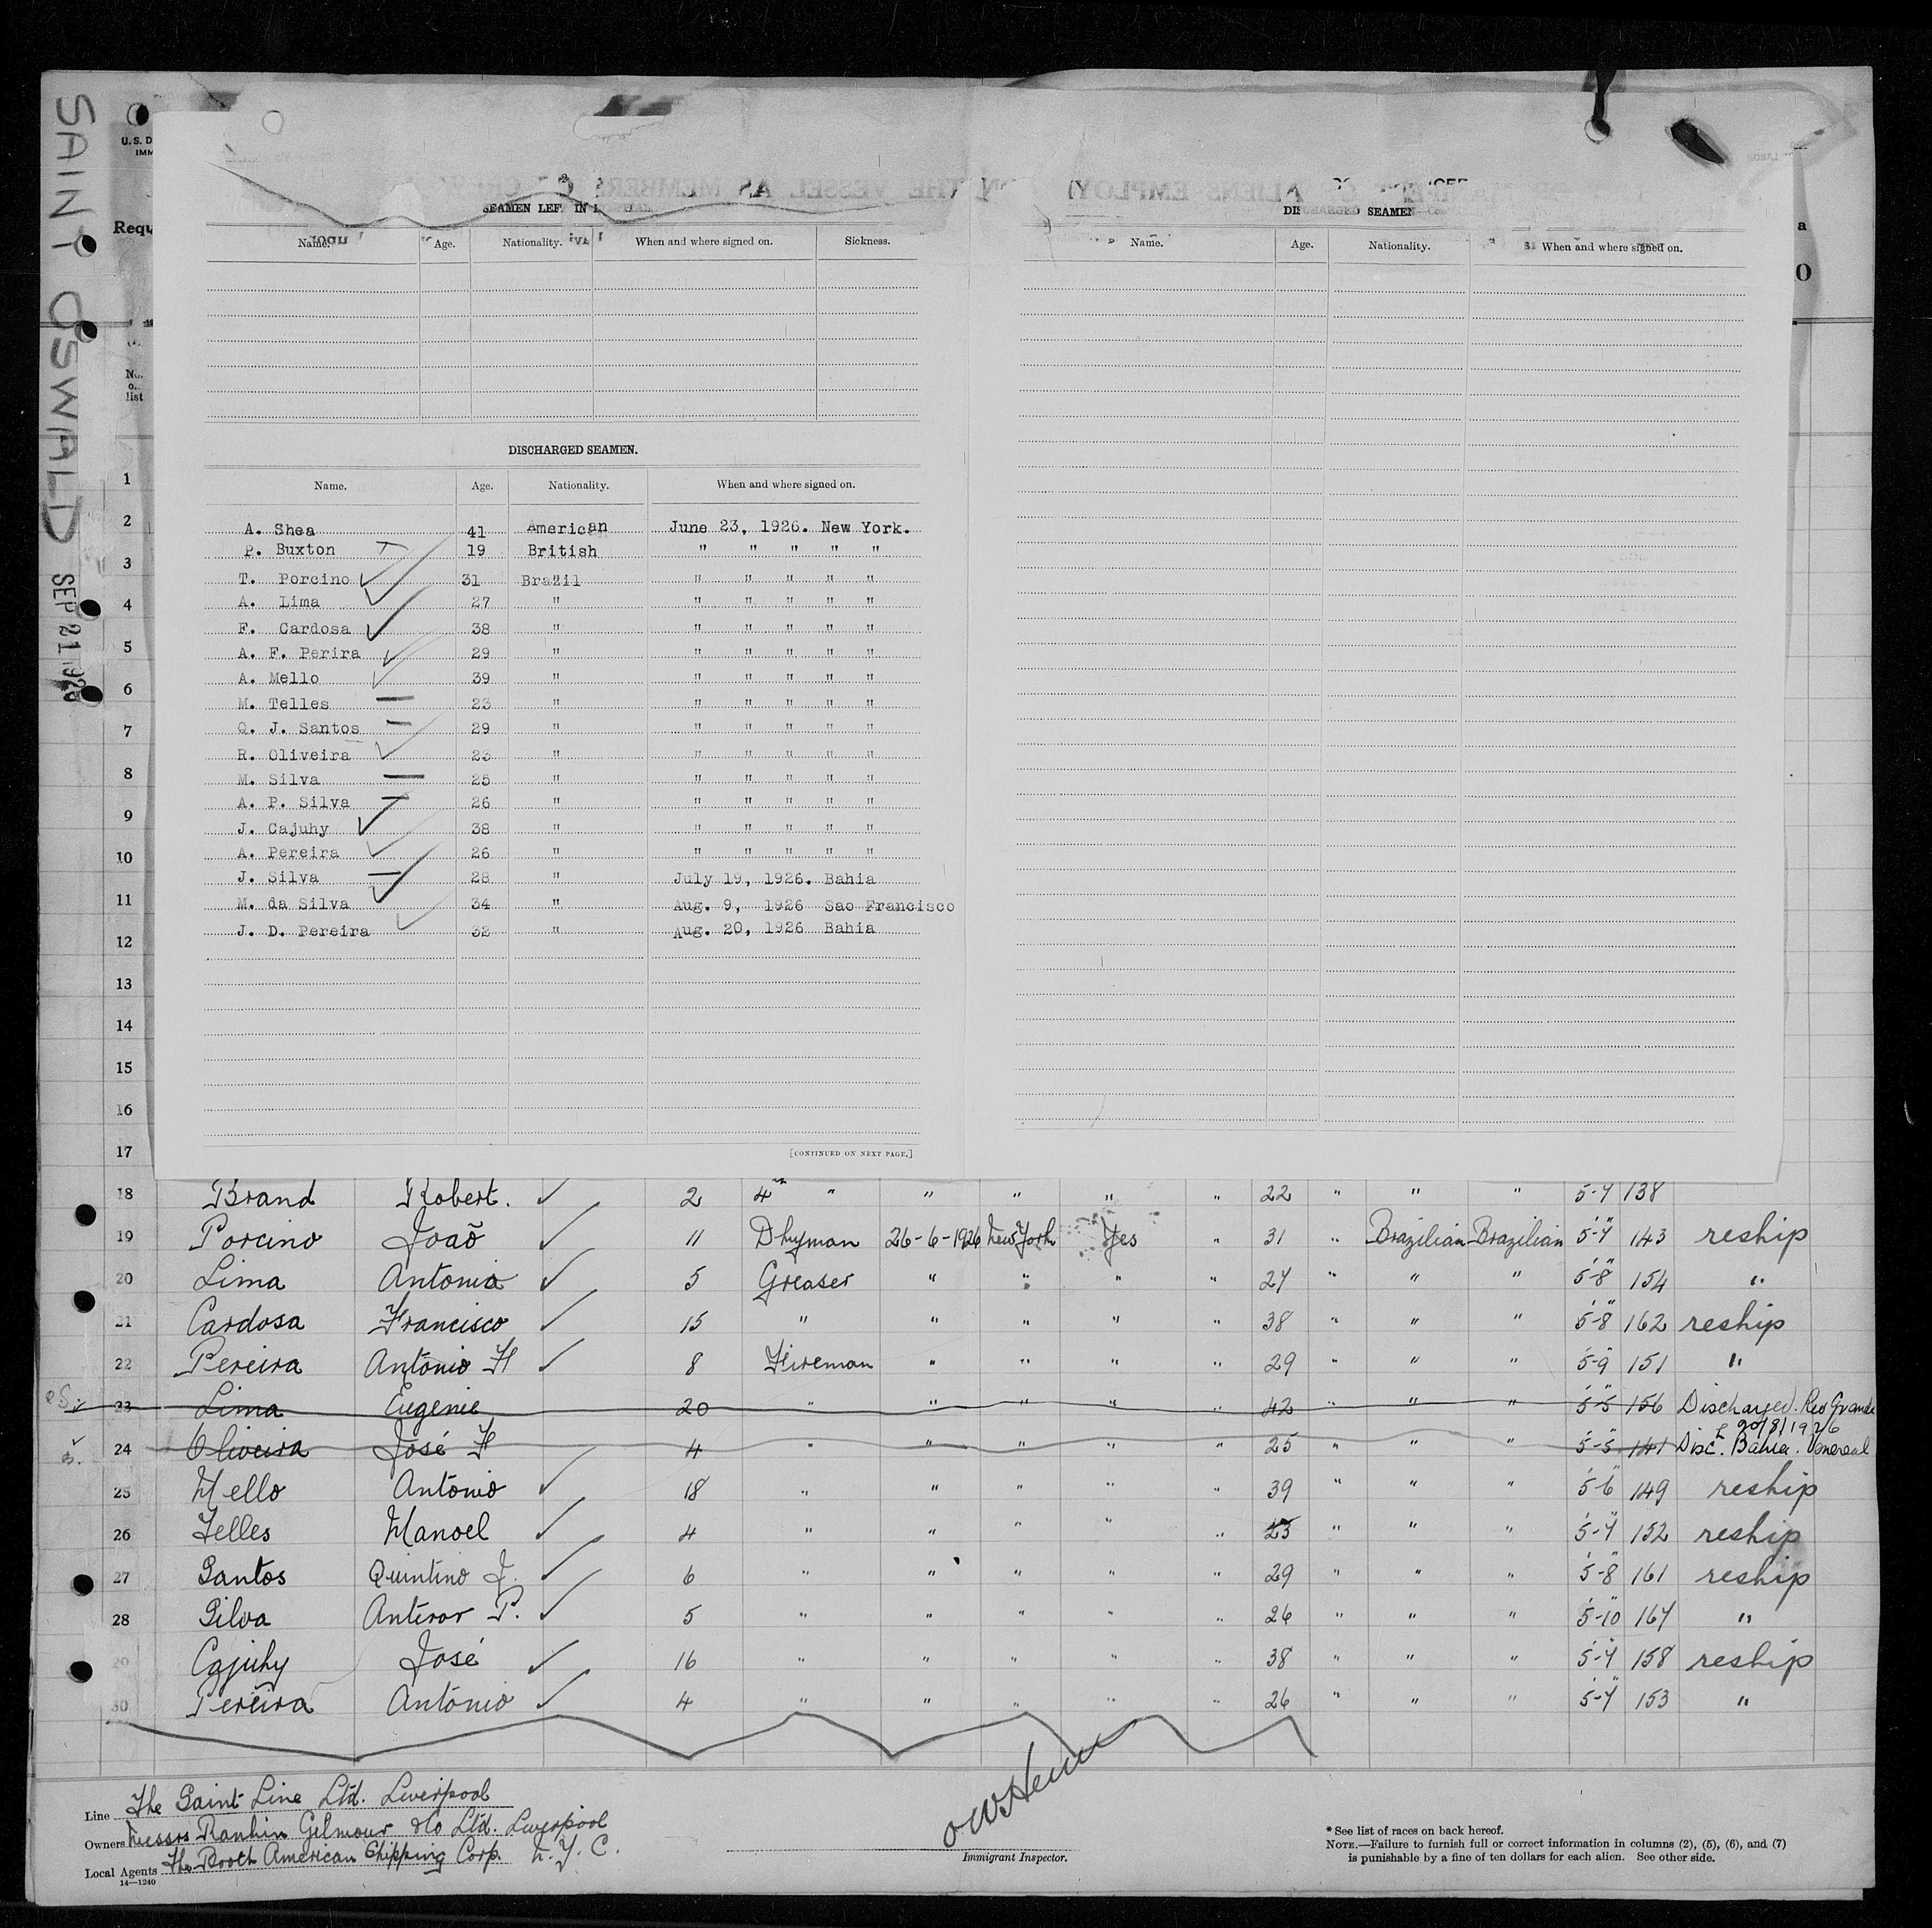 SAINT OSWALD
SEP 21 1926
U. S. D
IMM
Requ
a
0
No.
list
SEAMEN LEF IN
Name. Age. Nationality. When and where signed on. Sickness.
DISCHARGED SEAMEN.
Name. Age. Nationality. When and where signed on.
A. Shea 41 American June 23, 1926. New York.
P. Buxton 19 British " " " " "
T. Porcino 31 Brazil " " " " "
A. Lima 27 " " " " " "
F. Cardosa 38 " " " " " "
A. F. Perira 29 " " " " " "
A. Mello 39 " " " " " "
M. Telles 23 " " " " " "
Q. J. Santos 29 " " " " " "
R. Oliveira 23 " " " " " "
M. Silva 25 " " " " " "
A. P. Silva 26 " " " " " "
J. Cajuhy 38 " " " " " "
A. Pereira 26 " " " " " "
J. Silva 28 " July 19, 1926. Bahia
M. da Silva 34 " Aug. 9, 1926 Sao Francisco
J. D. Pereira 32 " Aug. 20, 1926 Bahia
[CONTINUED ON NEXT PAGE.]
DISCHARGED SEAMEN
Name. Age. Nationality. When and where signed on.
1
2
3
4
5
6
7
8
9
10
11
12
13
14
15
16
17
18 Brand Robert. 2 4th " " " " " 22 " " " 5-7 138
19 Porcino João 11 Dkyman 26-6-1926 New York Yes " 31 " Brazilian Brazilian 5-7 143 reship
20 Lima Antonio 5 Greaser " " " " 27 " " " 5-8 154 "
21 Cardosa Francisco 15 " " " " " 38 " " " 5-8 162 reship
22 Pereira Antonio F 8 Fireman " " " " 29 " " " 5-9 151 "
23 Lima Eugenie 20 " " " " " 42 " " " 5-5 156 Discharged. Rio Grande
20/8/1926
24 Oliveira José F 4 " " " " " 25 " " " 5-5 141 Disc. Bahia. Venereal
25 Mello Antonio 18 " " " " " 39 " " " 5-6 149 reship
26 Telles Manoel 4 " " " " " 23 " " " 5-7 152 reship
27 Santos Quintino J. 6 " " " " " 29 " " " 5-8 161 reship
28 Silva Anteror P. 5 " " " " " 26 " " " 5-10 167 "
29 Cajuhy José 16 " " " " " 38 " " " 5-7 158 reship
30 Pereira Antonio 4 " " " " " 26 " " " 5-7 153 "
Line The Saint Line Ltd. Liverpool
Owners Messrs Rankin Gilmour & Co Ltd. Liverpool
Local Agents The Booth American Shipping Corp. N. Y. C.
14—1240
Immigrant Inspector.
* See list of races on back hereof.
NOTE.—Failure to furnish full or correct information in columns (2), (5), (6), and (7)
is punishable by a fine of ten dollars for each alien. See other side.